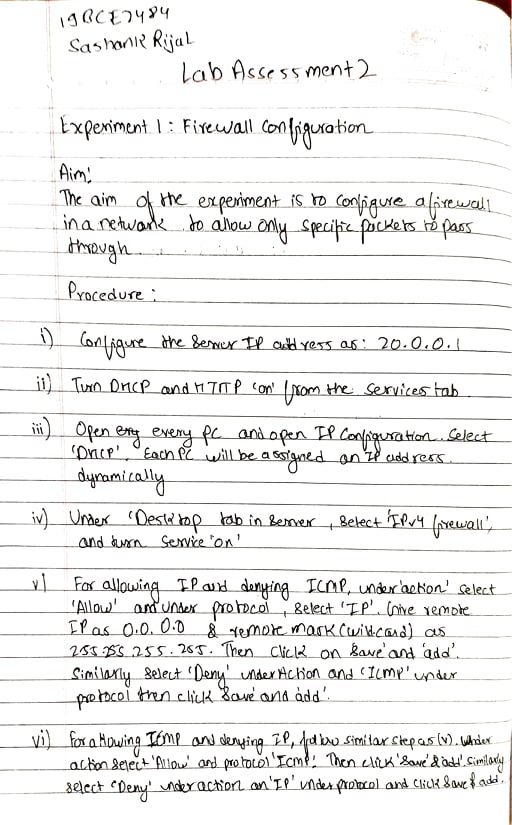 19BCE7484
Sashank Rijal
Lab Assessment 2
Experiment 1: Firewall Configuration
Aim:
The aim of the experiment is to configure a firewall
in a network to allow only specific packets to pass
through.
Procedure:
i) Configure the Server IP address as: 20.0.0.1
ii) Turn DHCP and HTTP 'on' from the services tab
iii) Open every PC and open IP Configuration. Select
'DHCP'. Each PC will be assigned an IP address
dynamically
iv) Under 'Desktop tab in Server, select 'IPv4 firewall',
and turn service 'on'
v) For allowing IP and denying ICMP, under 'action' select
'Allow' and under protocol, select 'IP'. Give remote
IP as 0.0.0.0 & remote mask (wildcard) as
255.255.255.255. Then click on 'save' and 'add'.
Similarly select 'Deny' under Action and 'Icmp' under
protocol then click 'save' and 'add'.
vi) For allowing ICMP and denying IP, follow similar step as (v). Under
action select 'Allow' and protocol 'Icmp'. Then click 'save' & 'add'. Similarly
select 'Deny' under action an 'IP' under protocol and click save & add.